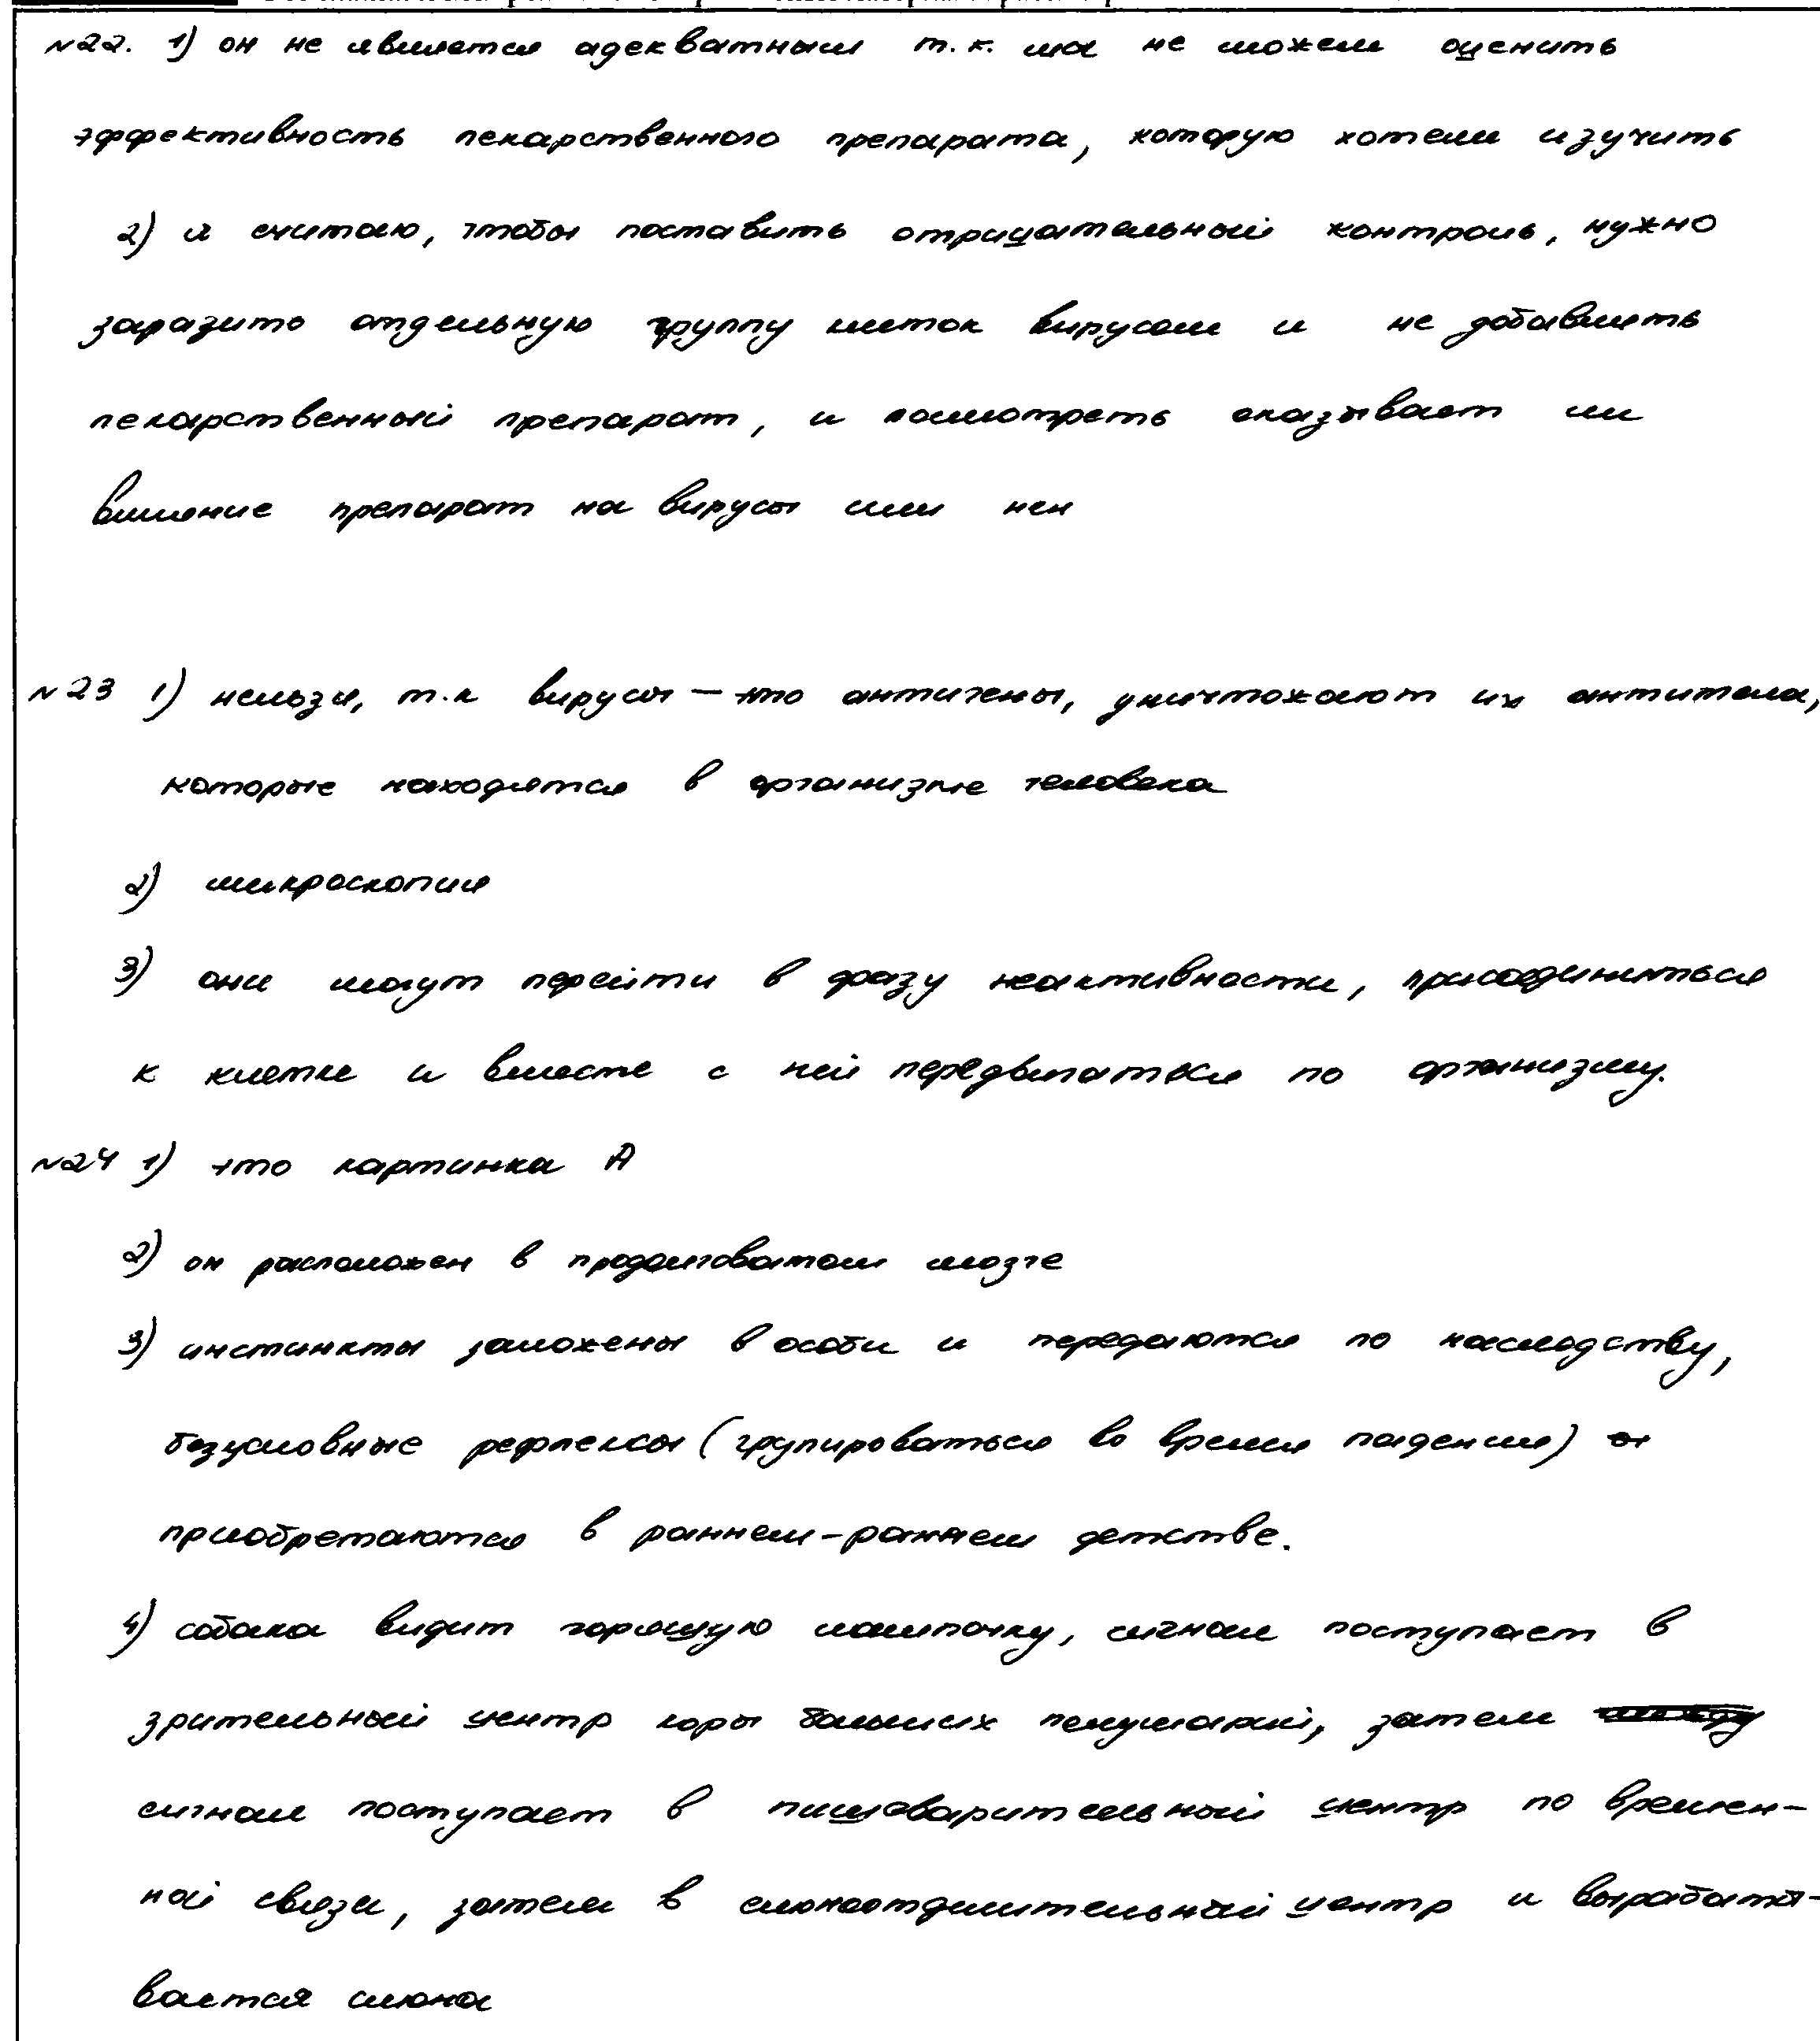 №22. 1) он не является адекватным т.к. мы не можем оценить
эффективность лекарственного препарата, которую хотели изучить
2) я считаю, чтобы поставить отрицательный контроль, нужно
заразить отдельную группу клеток вирусом и не добавлять
лекарственный препарат, и посмотреть оказывает ли
влияние препарат на вирусы или нен
№23 1) нельзя, т.к вирусы – это антигены, уничтожают их антитела,
которые находятся в организме человека
2) микроскопия
3) они могут перейти в фазу неактивности, присоединиться
к клетке и вместе с ней передвигаться по организму.
№24 1) это картинка А
2) он расположен в продолговатом мозге
3) инстинкты заложены в особи и передаются по наследству,
безусловные рефлексы (групироваться во время падения)
приобретаются в раннем-раннем детстве.
4) собака видит горящую лампочку, сигнал поступает в
зрительный центр коры больших полушарий, затем
сигнал поступает в пищеварительный центр по времен-
ной связи, затем в слюноотделительный центр и вырабаты-
вается слюна